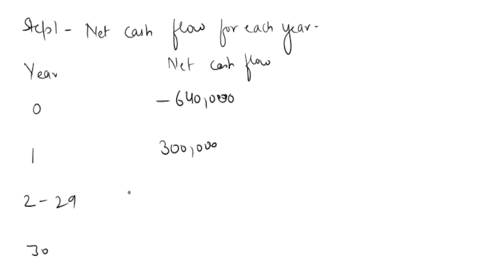 Step1 - Net cash flow for each year.
Year Net cash flow
0 - 640,000
1 300,000
2 - 29
30